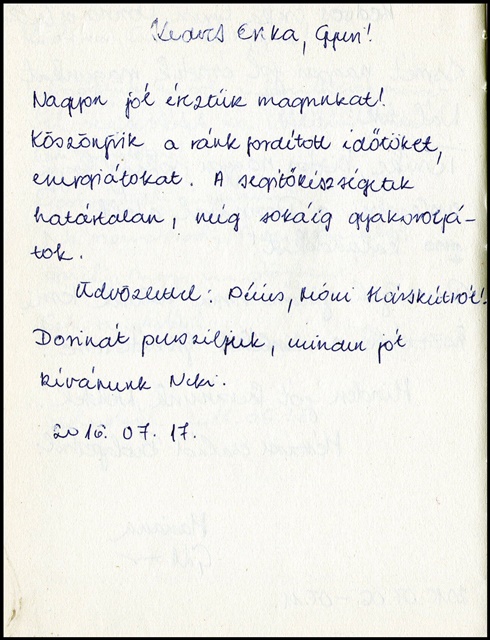 Kedves Erika, Gyuri!
Nagyon jól éreztük magunkat!
Köszönjük a ránk fordított időtöket,
energiátokat. A segítőkészségetek
határtalan, még sokáig gyakoroljá-
tok.
Üdvözlettel: Dénes, Móni Hárskútról!
Dorinát pusziljuk, minden jót
kívánunk Neki.
2016. 07. 17.